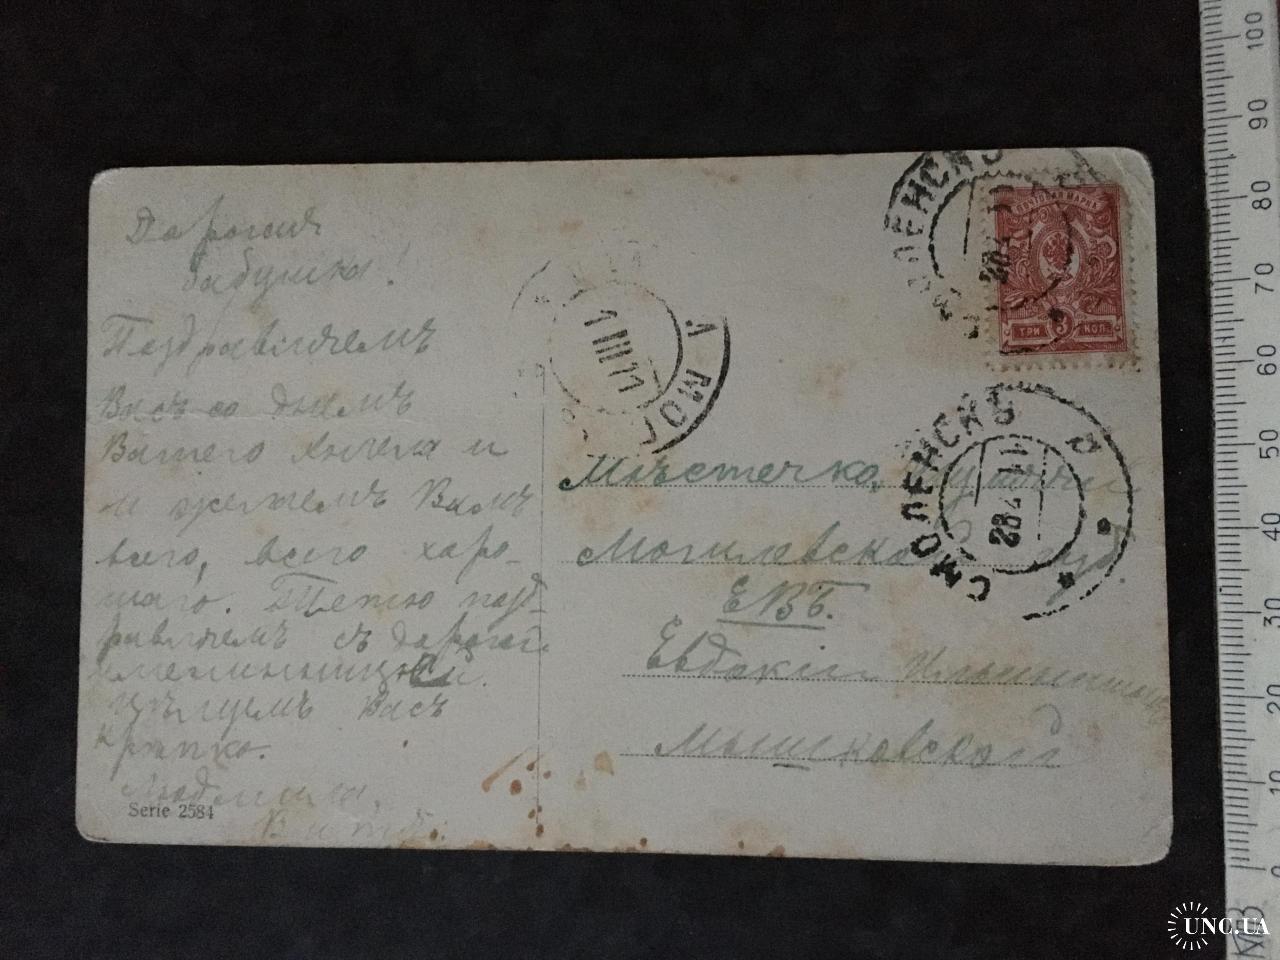 Дорогая
бабушка!
Поздравляемъ
Васъ со днемъ
Вашего Ангела и
и желаемъ Вамъ
всего, всего харо-
шаго. Тетю позд-
равляемъ съ дорогой
именинницей.
Цѣлуемъ Васъ
крѣпко.
Людмила,
Витя.
Serie 2584
СМОЛЕНСКЪ
28
ПОЧТОВАЯ МАРКА
3
ТРИ КОП.
1 III 11
МОГ
СМОЛЕНСКЪ
28
Мѣстечко
Могилевской губ.
ЕВБ.
Евдокіи Ильиничнѣ
Мышковской
100
90
80
70
60
50
40
30
20
10
0
UNC.UA